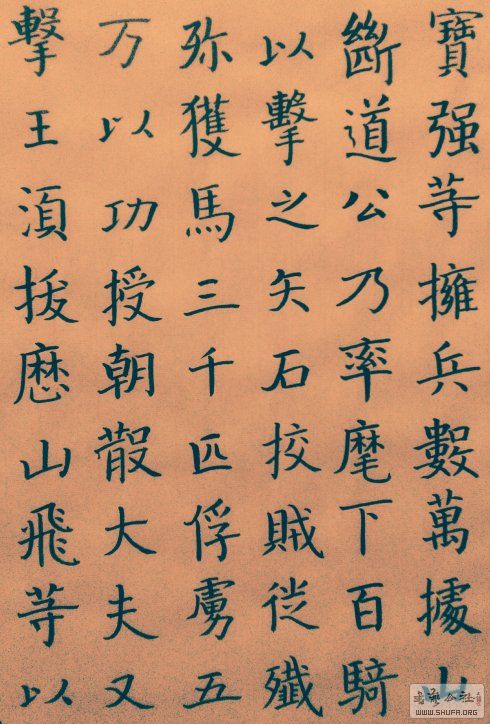 寶强等擁兵數萬據山
斷道公乃率麾下百騎
以擊之矢石挍賊徒殲
弥獲馬三千匹俘虜五
万以功授朝散大夫又
擊王湏拔歷山飛等以
WWW.SHUFA.ORG